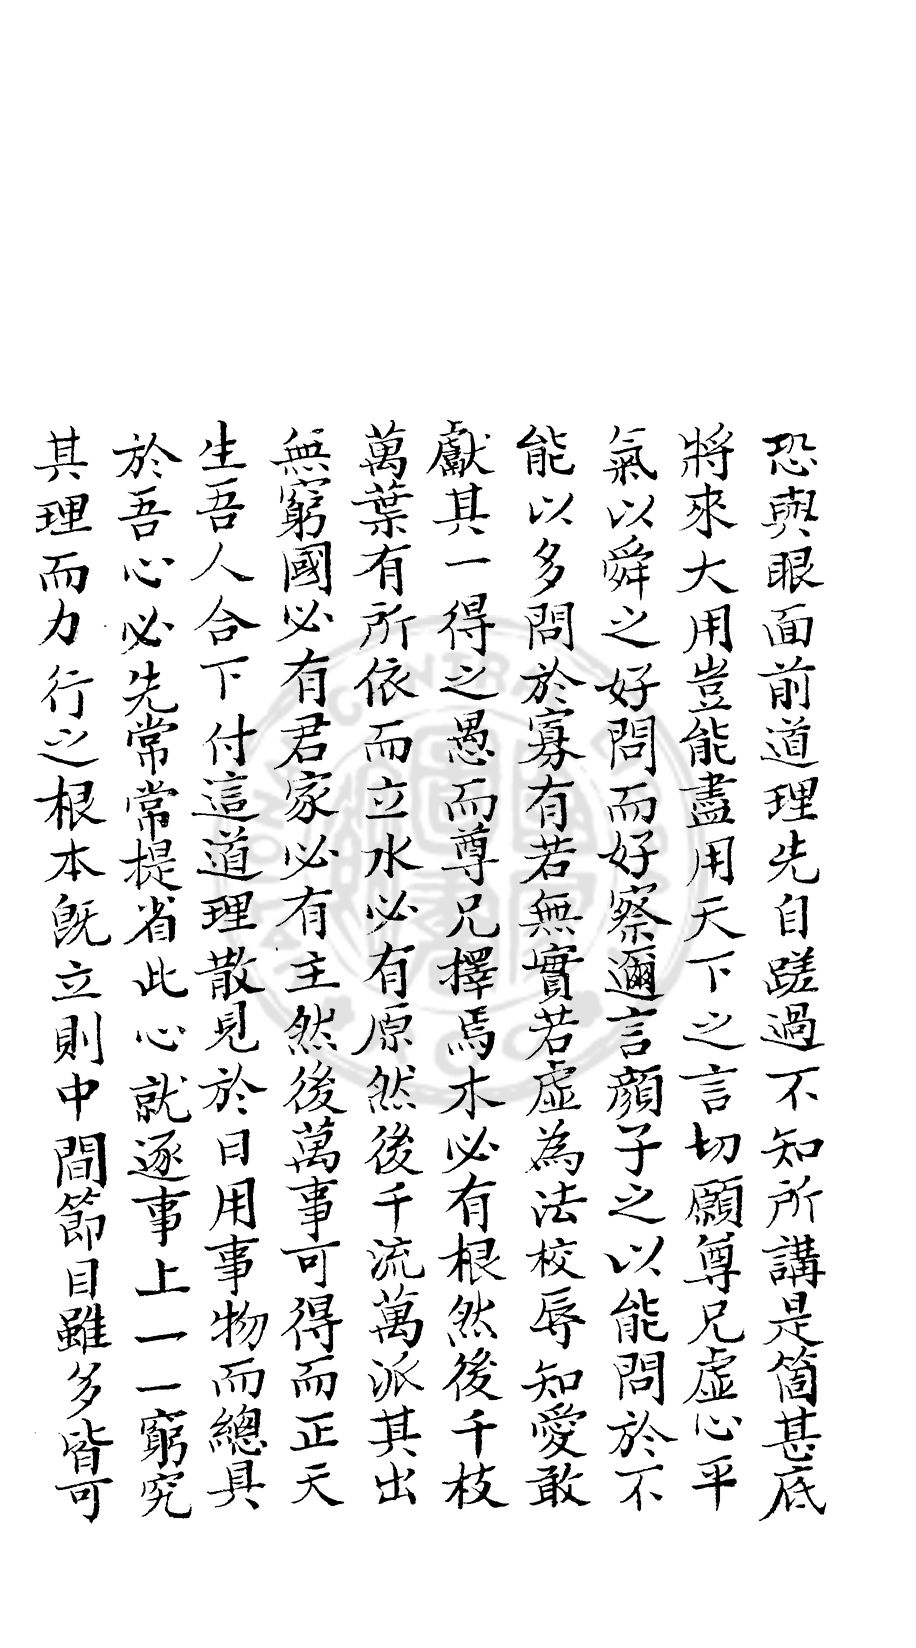 恐與眼面前道理先自蹉過不知所講是箇甚底
將來大用豈能盡用天下之言切願尊兄虛心平
氣以舜之好問而好察邇言顏子之以能問於不
能以多問於寡有若無實若虛為法校辱知愛敢
獻其一得之愚而尊兄擇焉木必有根然後千枝
萬葉有所依而立水必有原然後千流萬派其出
無窮國必有君家必有主然後萬事可得而正天
生吾人合下付這道理散見於日用事物而總具
於吾心必先常常提省此心就逐事上一一窮究
其理而力行之根本旣立則中間節目雖多皆可